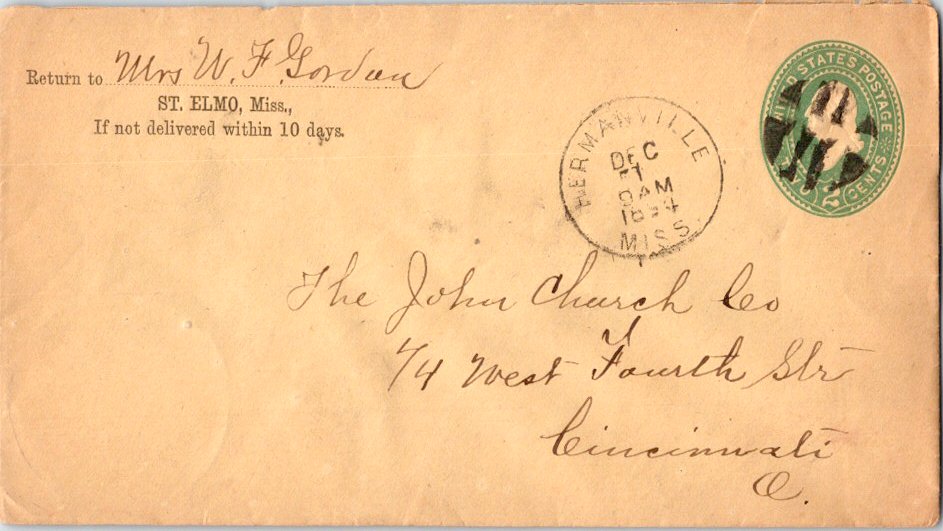 Return to Mrs W. F. Gordon
ST. ELMO, Miss.,
If not delivered within 10 days.
HERMANVILLE
DEC
8AM
1894
MISS.
UNITED STATES POSTAGE
2 CENTS
The John Church Co
74 West Fourth Str
Cincinnati
O.